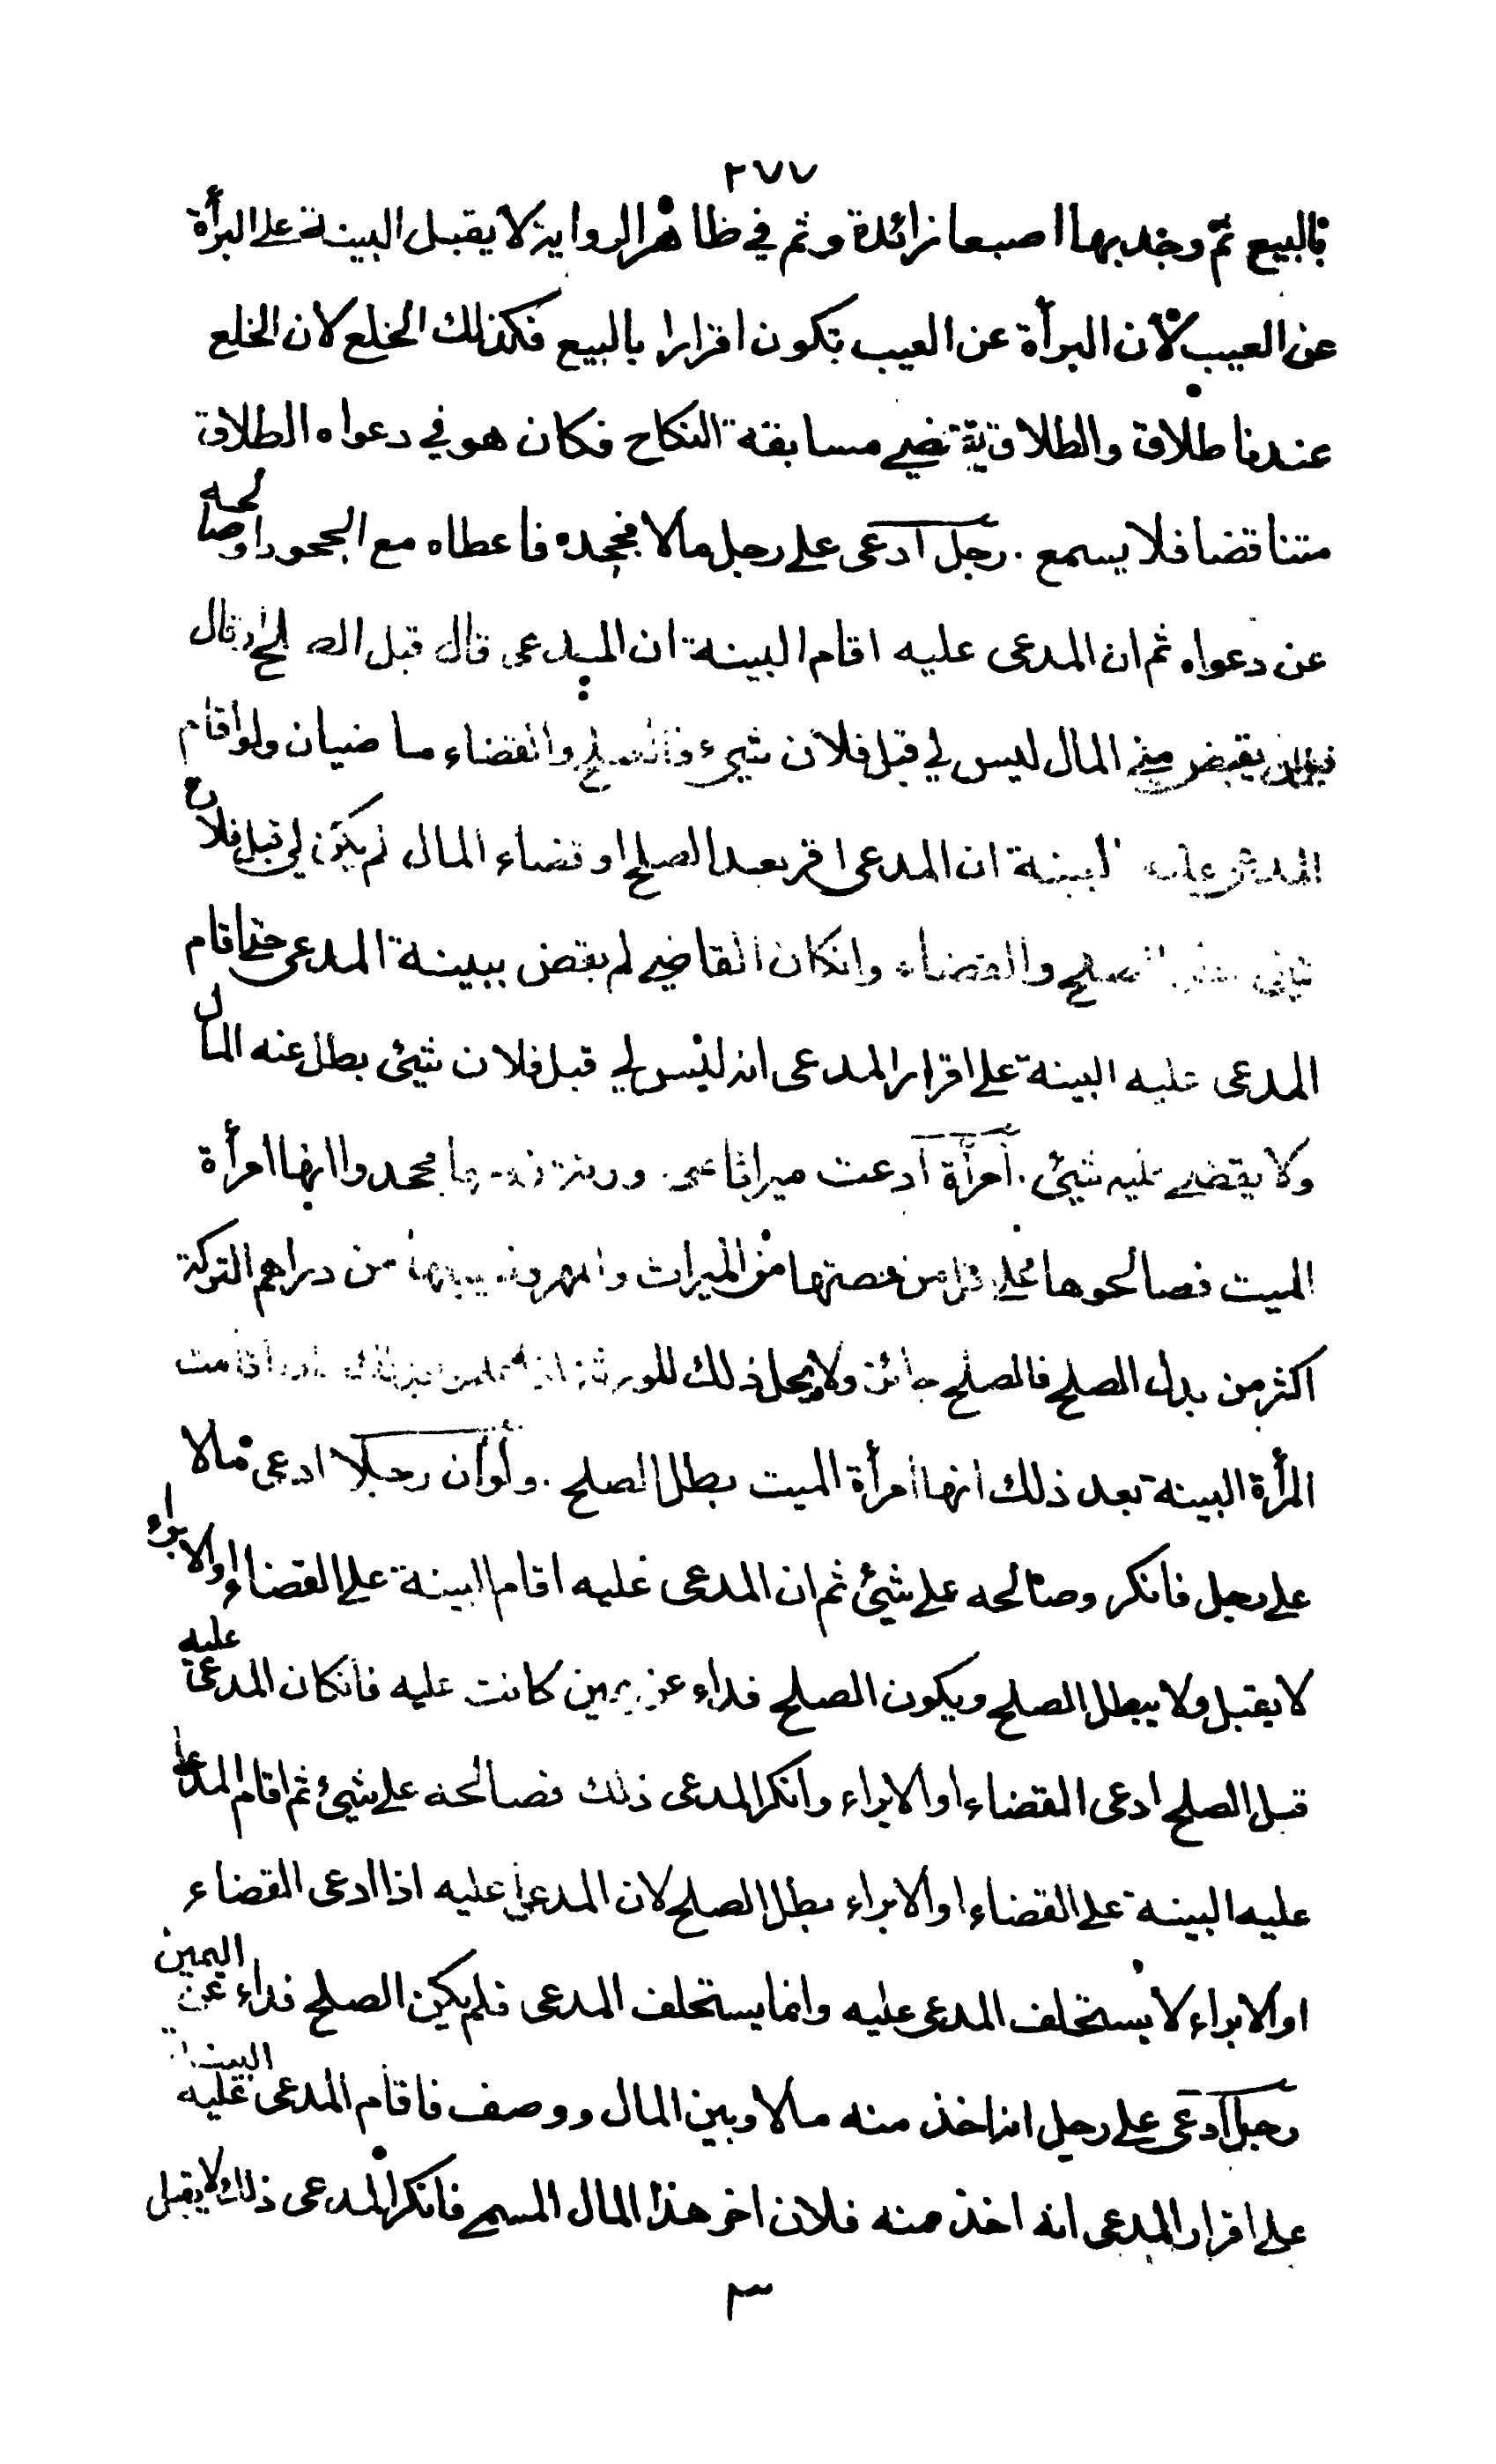 ٢٧٧
بالبيع ثم وجد بها اصبعا زائدة وثم في ظاهر الرواية لا يقبل البينة على البرأة
عن العيب لأن البرأة عن العيب تكون اقرارا بالبيع فكذلك الخلع لان الخلع
عندنا طلاق والطلاق يقتضي مسابقة النكاح فكان هو في دعواه الطلاق
متناقضا فلا يسمع . رجل ادعى على رجل مالا فجحده فاعطاه مع الجحود او صالحه
عن دعواه ثم ان المدعى عليه اقام البينة ان المدعى قال قبل الصلح او قال
قبل ان يقبض مني المال ليس لي قبل فلان شيئ فالصلح والقضاء ماضيان ولو اقام
المدعى عليه البينة ان المدعى اقر بعد الصلح او قضاء المال لم يكن لي قبل فلان
شيئ الصلح والقضاء وانكان القاضي لم يقض ببينة المدعى حتى اقام
المدعى عليه البينة على اقرار المدعى انه ليس لي قبل فلان شيئ بطل عنه المال
ولا يقضى عليه شيئ . امرأة ادعت ميراثا على ورثة زوجها فجحدوا انها امرأة
الميت فصالحوها على اقل من حصتها من الميراث والمهر ونصيبها من دراهم التركة
اكثر من بدل الصلح فالصلح جائز ولا يحل ذلك للورثة اقامت
المرأة البينة بعد ذلك انها امرأة الميت بطل الصلح . ولو ان رجلا ادعى مالا
على رجل فانكر وصالحه على شيئ ثم ان المدعى عليه اقام البينة على القضاء او الابراء
لا يقبل ولا يبطل الصلح ويكون الصلح فداء عن يمين كانت عليه فانكان المدعى عليه
قبل الصلح ادعى القضاء او الابراء وانكر المدعى ذلك فصالحه على شيئ ثم اقام المدعا
عليه البينة على القضاء او الابراء بطل الصلح لان المدعى عليه اذا ادعى القضاء
او الابراء لا يستحلف المدعى عليه وانما يستحلف المدعى فلم يكن الصلح فداء عن اليمين
رجل ادعى على رجل انه اخذ منه مالا وبين المال ووصف فاقام المدعى عليه البينة
على اقرار المدعى انه اخذ منه فلان اخر هذا المال المسمى فانكر المدعى ذلك لا يقبل
٣